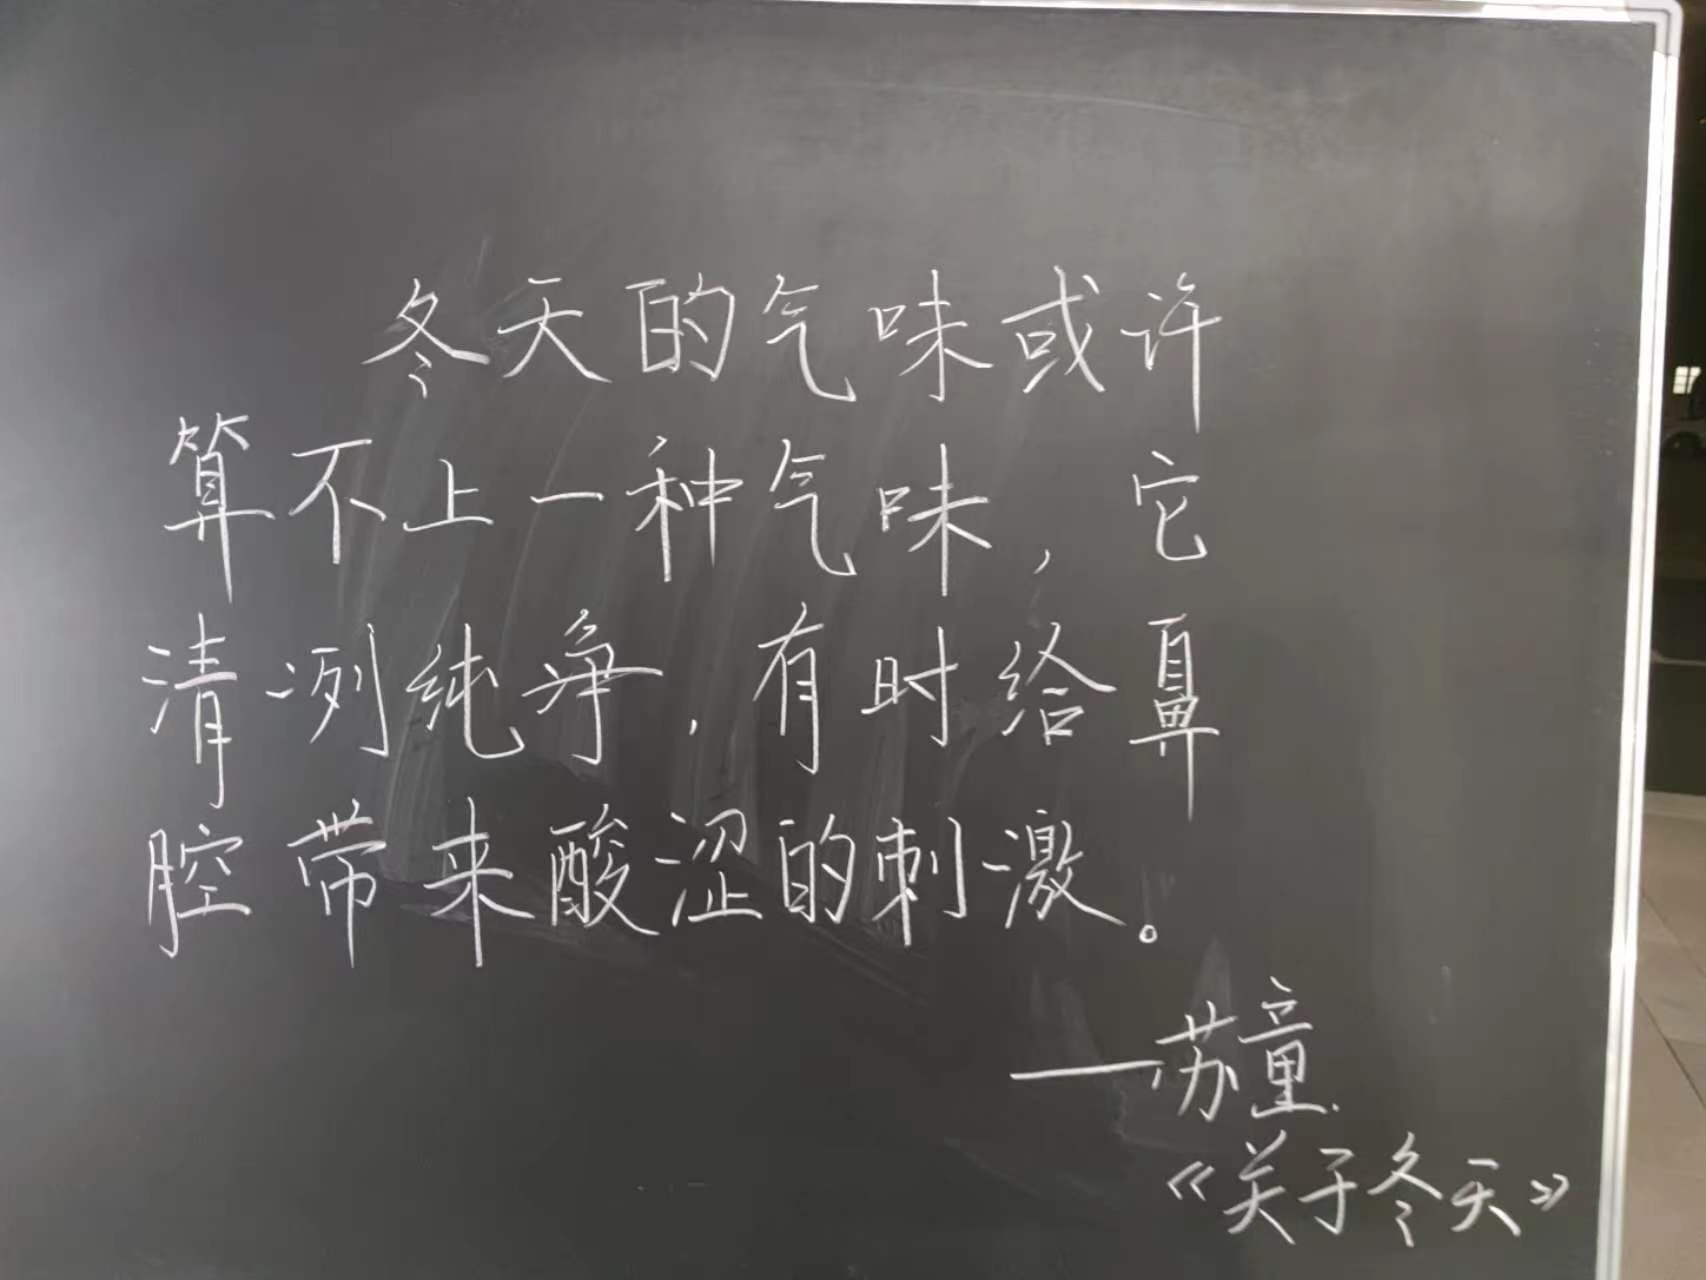 冬天的气味或许
算不上一种气味，它
清冽纯净，有时给鼻
腔带来酸涩的刺激。
——苏童
《关于冬天》